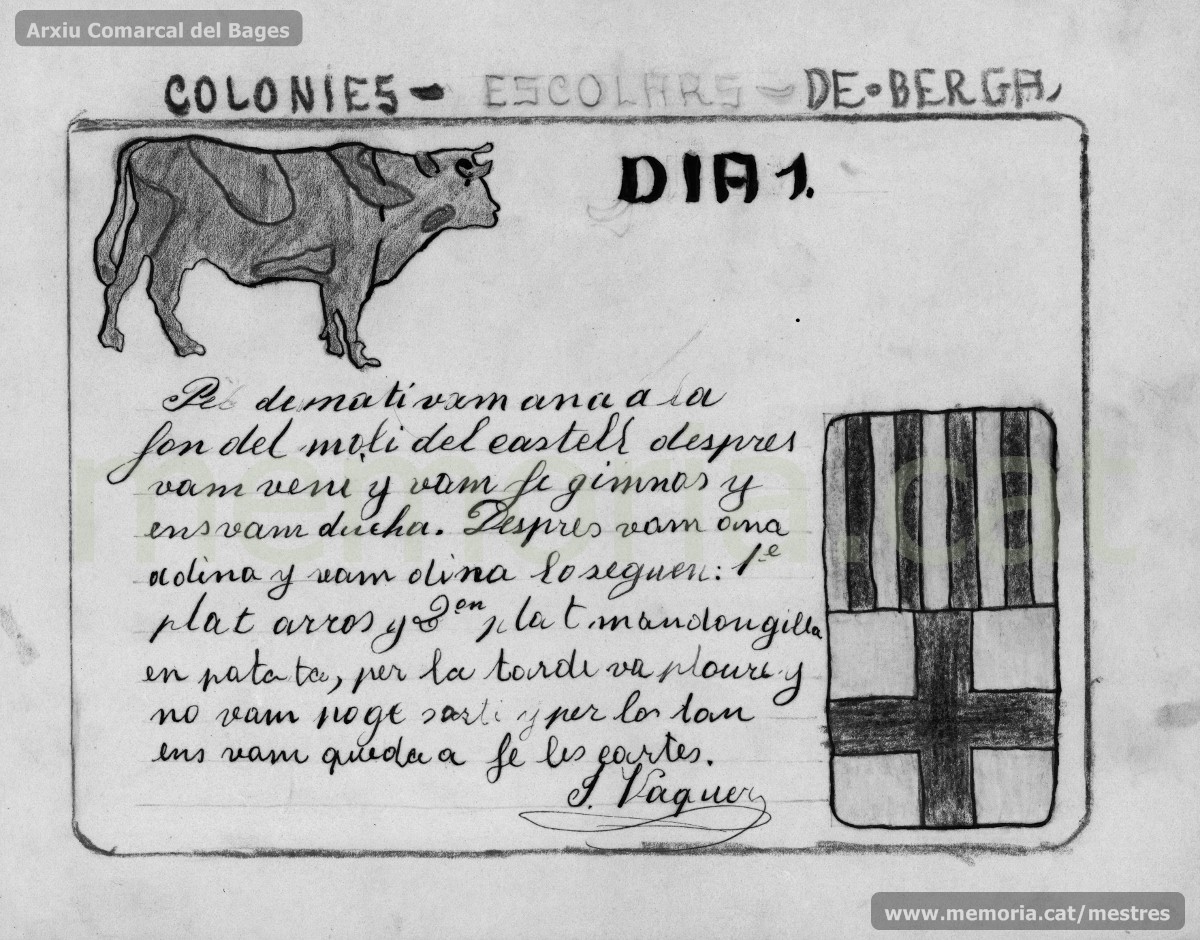 Arxiu Comarcal del Bages
COLONIES - ESCOLARS - DE·BERGA,
DIA 1.
Pel dematí vam ana a la
fon del moli del castell despres
vam veni y vam fe gimnas y
ens vam ducha. Despres vam ana
a dina y vam dina lo seguen: 1e
plat arros y 2on plat mandougilla
en patata, per la tarde va ploure y
no vam poge sorti y per lo tan
ens vam queda a fe les cartes.
J. Vaquer
memoria.cat
www.memoria.cat/mestres